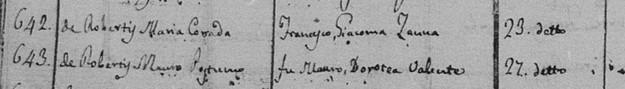 642. de Robertis Maria Corrada Francesco, Giacoma Zanna 23. detto
643. de Robertis Mauro Postumo fu Mauro, Dorotea Valente 27. detto